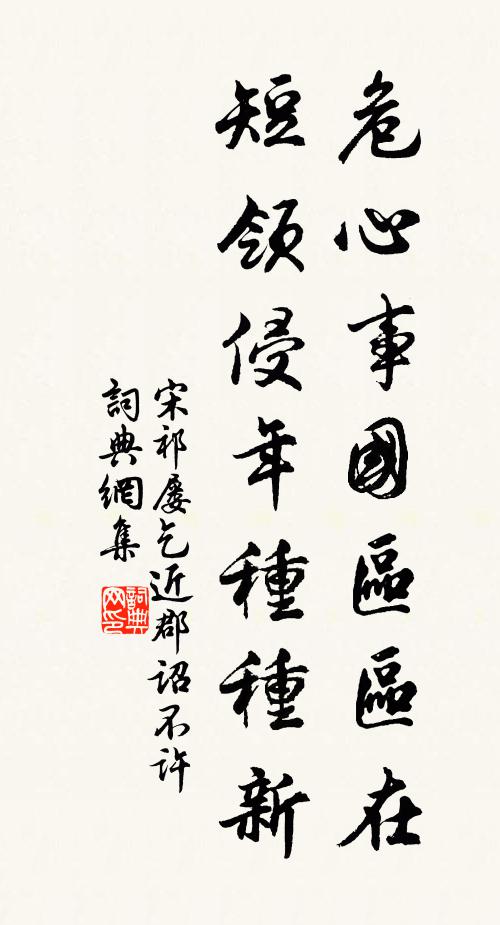 危心事國區區在
短領侵年種種新
宋祁屢乞近郡詔不許
詞典網集
詞典網印